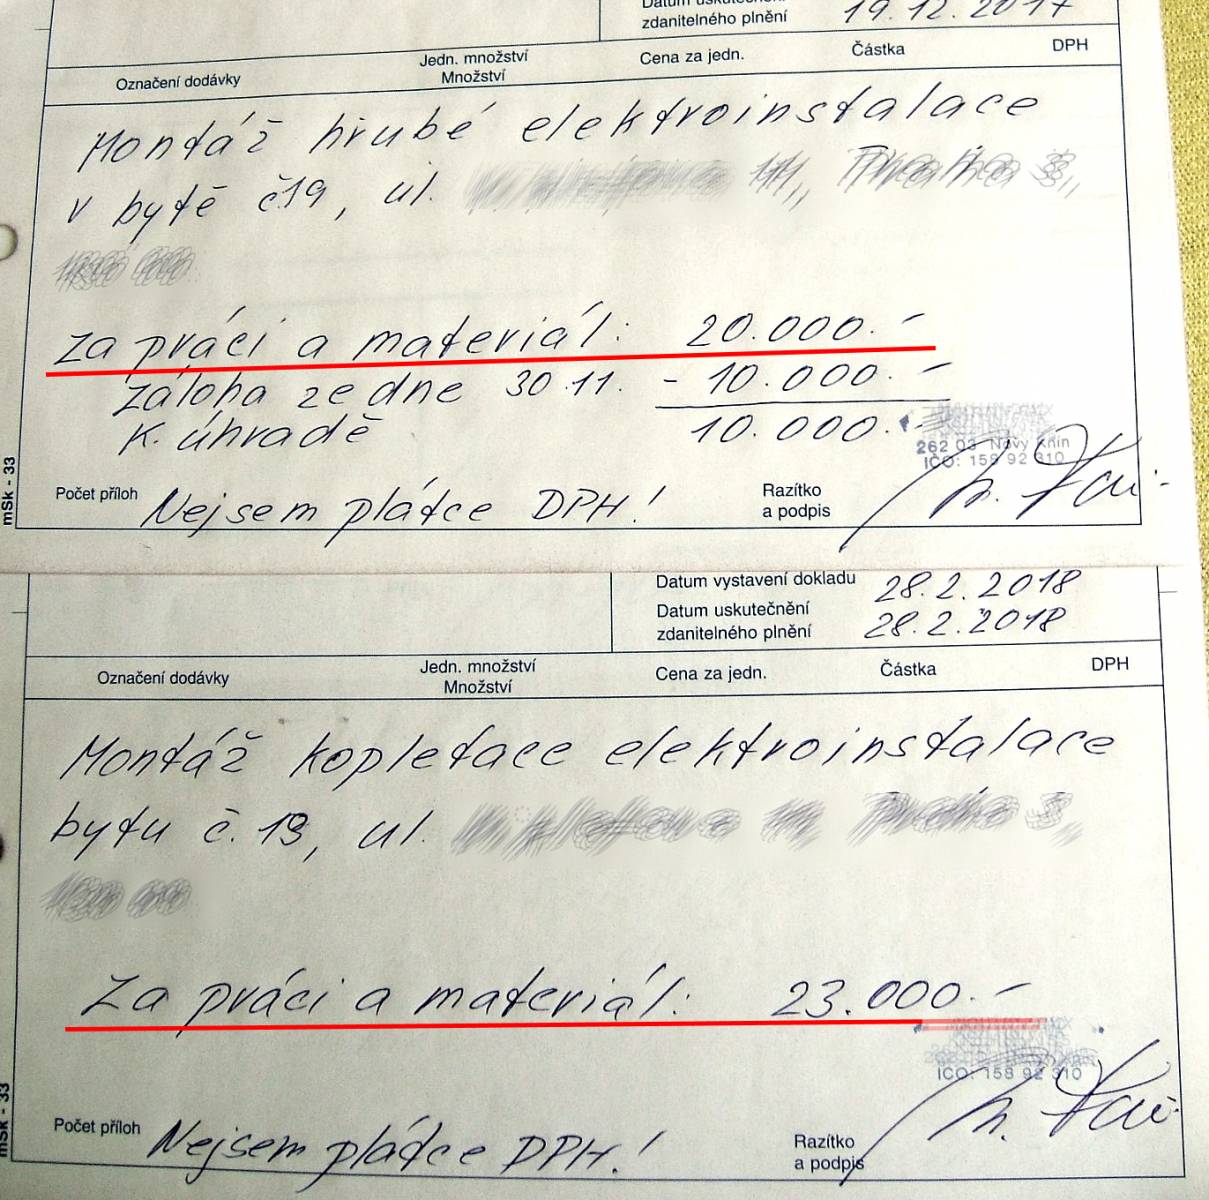 Datum uskutečnění
zdanitelného plnění 19.12.2017
Označení dodávky Jedn. množství Cena za jedn. Částka DPH
Množství
Montáž hrubé elektroinstalace
v bytě č.19, ul.
za práci a materiál: 20.000.-
záloha ze dne 30.11. - 10.000.-
K úhradě 10.000.-
262 03 Nový Knín
IČO: 158 92 310
mSk - 33
Počet příloh Nejsem plátce DPH! Razítko
a podpis
Datum vystavení dokladu 28.2.2018
Datum uskutečnění
zdanitelného plnění 28.2.2018
Označení dodávky Jedn. množství Cena za jedn. Částka DPH
Množství
Montáž kopletace elektroinstalace
bytu č. 19, ul.
Za práci a materiál: 23.000.-
IČO: 158 92 310
mSk - 33
Počet příloh Nejsem plátce DPH! Razítko
a podpis